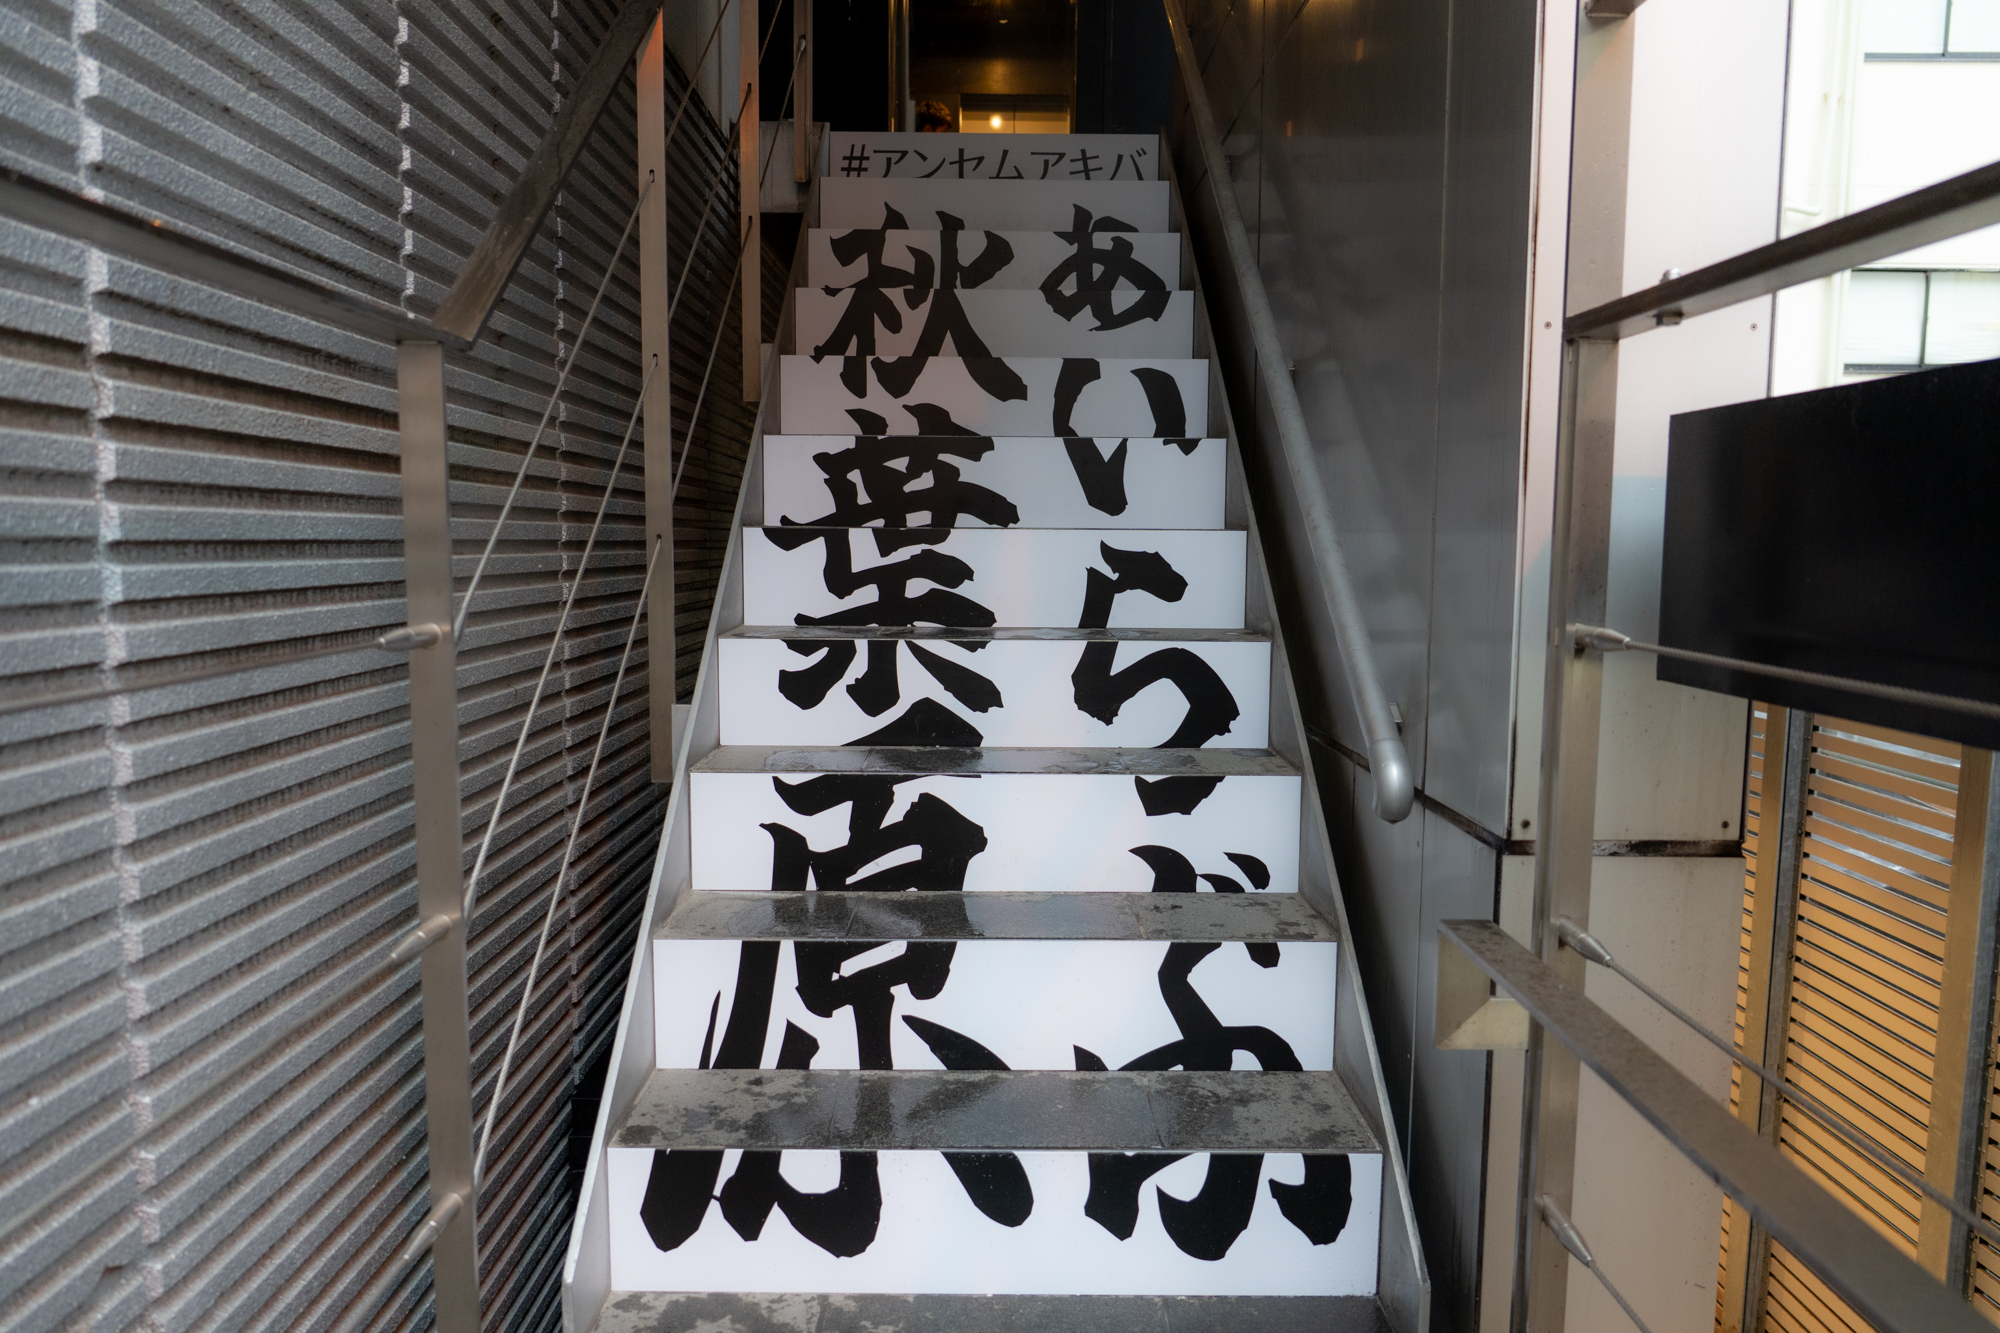 #アンヤムアキバ
あいらぶ
秋葉原